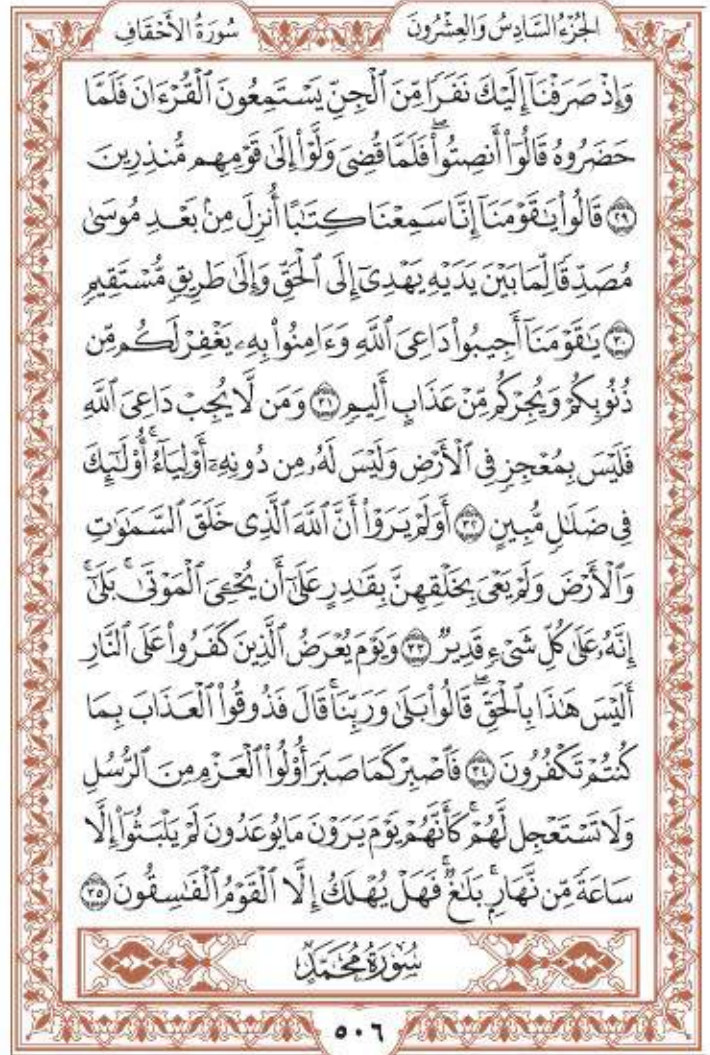 الجُزْءُ السَّادِسُ وَالعِشْرُونَ
سُورَةُ الأَحْقَافِ
وَإِذْ صَرَفْنَآ إِلَيْكَ نَفَرٗا مِّنَ ٱلْجِنِّ يَسْتَمِعُونَ ٱلْقُرْءَانَ فَلَمَّا
حَضَرُوهُ قَالُوٓاْ أَنصِتُواْۖ فَلَمَّا قُضِىَ وَلَّوْاْ إِلَىٰ قَوْمِهِم مُّنذِرِينَ
٢٩ قَالُواْ يَٰقَوْمَنَآ إِنَّا سَمِعْنَا كِتَٰبًا أُنزِلَ مِنۢ بَعْدِ مُوسَىٰ
مُصَدِّقٗا لِّمَا بَيْنَ يَدَيْهِ يَهْدِىٓ إِلَى ٱلْحَقِّ وَإِلَىٰ طَرِيقٖ مُّسْتَقِيمٖ
٣٠ يَٰقَوْمَنَآ أَجِيبُواْ دَاعِىَ ٱللَّهِ وَءَامِنُواْ بِهِۦ يَغْفِرْ لَكُم مِّن
ذُنُوبِكُمْ وَيُجِرْكُم مِّنْ عَذَابٍ أَلِيمٖ ٣١ وَمَن لَّا يُجِبْ دَاعِىَ ٱللَّهِ
فَلَيْسَ بِمُعْجِزٖ فِى ٱلْأَرْضِ وَلَيْسَ لَهُۥ مِن دُونِهِۦٓ أَوْلِيَآءُۚ أُوْلَٰٓئِكَ
فِى ضَلَٰلٖ مُّبِينٍ ٣٢ أَوَلَمْ يَرَوْاْ أَنَّ ٱللَّهَ ٱلَّذِى خَلَقَ ٱلسَّمَٰوَٰتِ
وَٱلْأَرْضَ وَلَمْ يَعْىَ بِخَلْقِهِنَّ بِقَٰدِرٍ عَلَىٰٓ أَن يُحْـِۧىَ ٱلْمَوْتَىٰۚ بَلَىٰٓ
إِنَّهُۥ عَلَىٰ كُلِّ شَىْءٖ قَدِيرٞ ٣٣ وَيَوْمَ يُعْرَضُ ٱلَّذِينَ كَفَرُواْ عَلَى ٱلنَّارِ
أَلَيْسَ هَٰذَا بِٱلْحَقِّۖ قَالُواْ بَلَىٰ وَرَبِّنَاۚ قَالَ فَذُوقُواْ ٱلْعَذَابَ بِمَا
كُنتُمْ تَكْفُرُونَ ٣٤ فَٱصْبِرْ كَمَا صَبَرَ أُوْلُواْ ٱلْعَزْمِ مِنَ ٱلرُّسُلِ
وَلَا تَسْتَعْجِل لَّهُمْۚ كَأَنَّهُمْ يَوْمَ يَرَوْنَ مَا يُوعَدُونَ لَمْ يَلْبَثُوٓاْ إِلَّا
سَاعَةٗ مِّن نَّهَارِۭۚ بَلَٰغٞۚ فَهَلْ يُهْلَكُ إِلَّا ٱلْقَوْمُ ٱلْفَٰسِقُونَ ٣٥
سُورَةُ مُحَمَّدٍ
٥٠٦